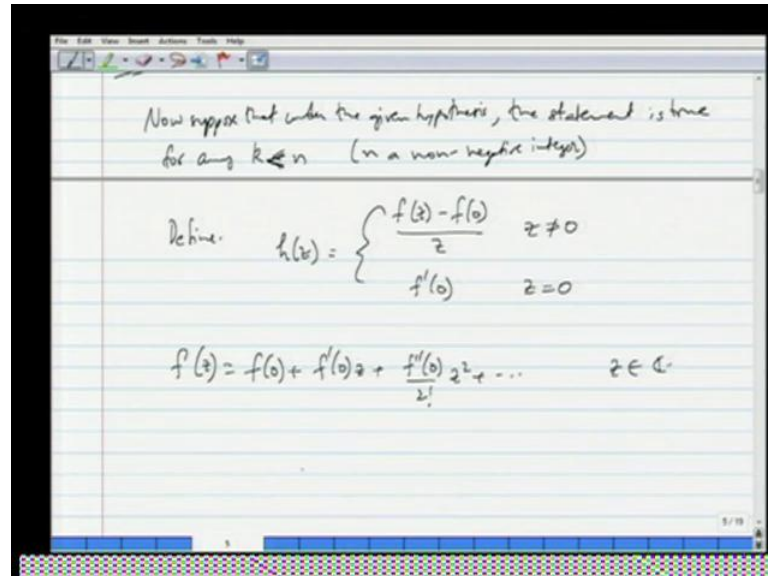 File Edit View Insert Actions Tools Help
Now suppose that under the given hypothesis, the statement is true
for any k < n (n a non-negative integer)
Define. h(z) = { f(z) - f(0) / z z ≠ 0
f'(0) z = 0
f(z) = f(0) + f'(0) z + f''(0)/2! z² + ... z ∈ ℂ.
5/19
5